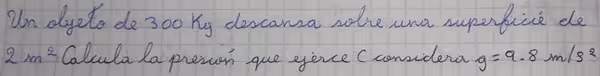 Un objeto de 300 Kg descansa sobre una superficie de
2 m² Calcula la presion que ejerce (considera g = 9.8 m/s²